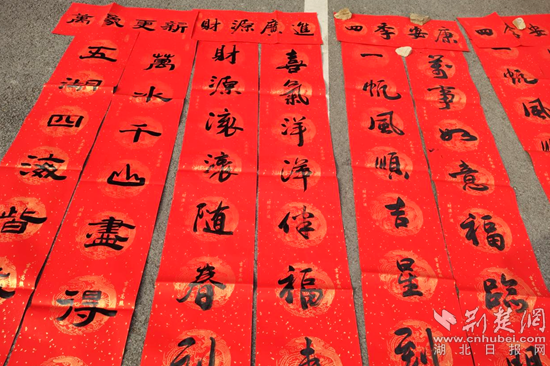 萬象更新
財源廣進
四季安康
四季安
五湖四海皆
萬水千山盡得
財源滾滾随春到
喜氣洋洋伴福
一帆風順吉星到
萬事如意福臨
一帆風順
荆楚網
www.cnhubei.com
湖北日报网